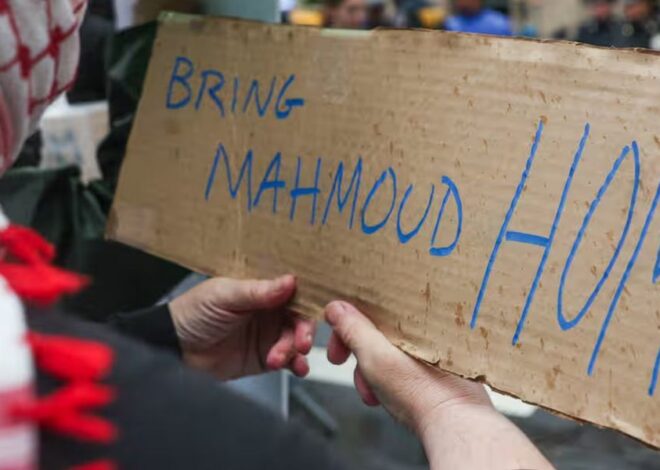 BRING
MAHMOUD HOM